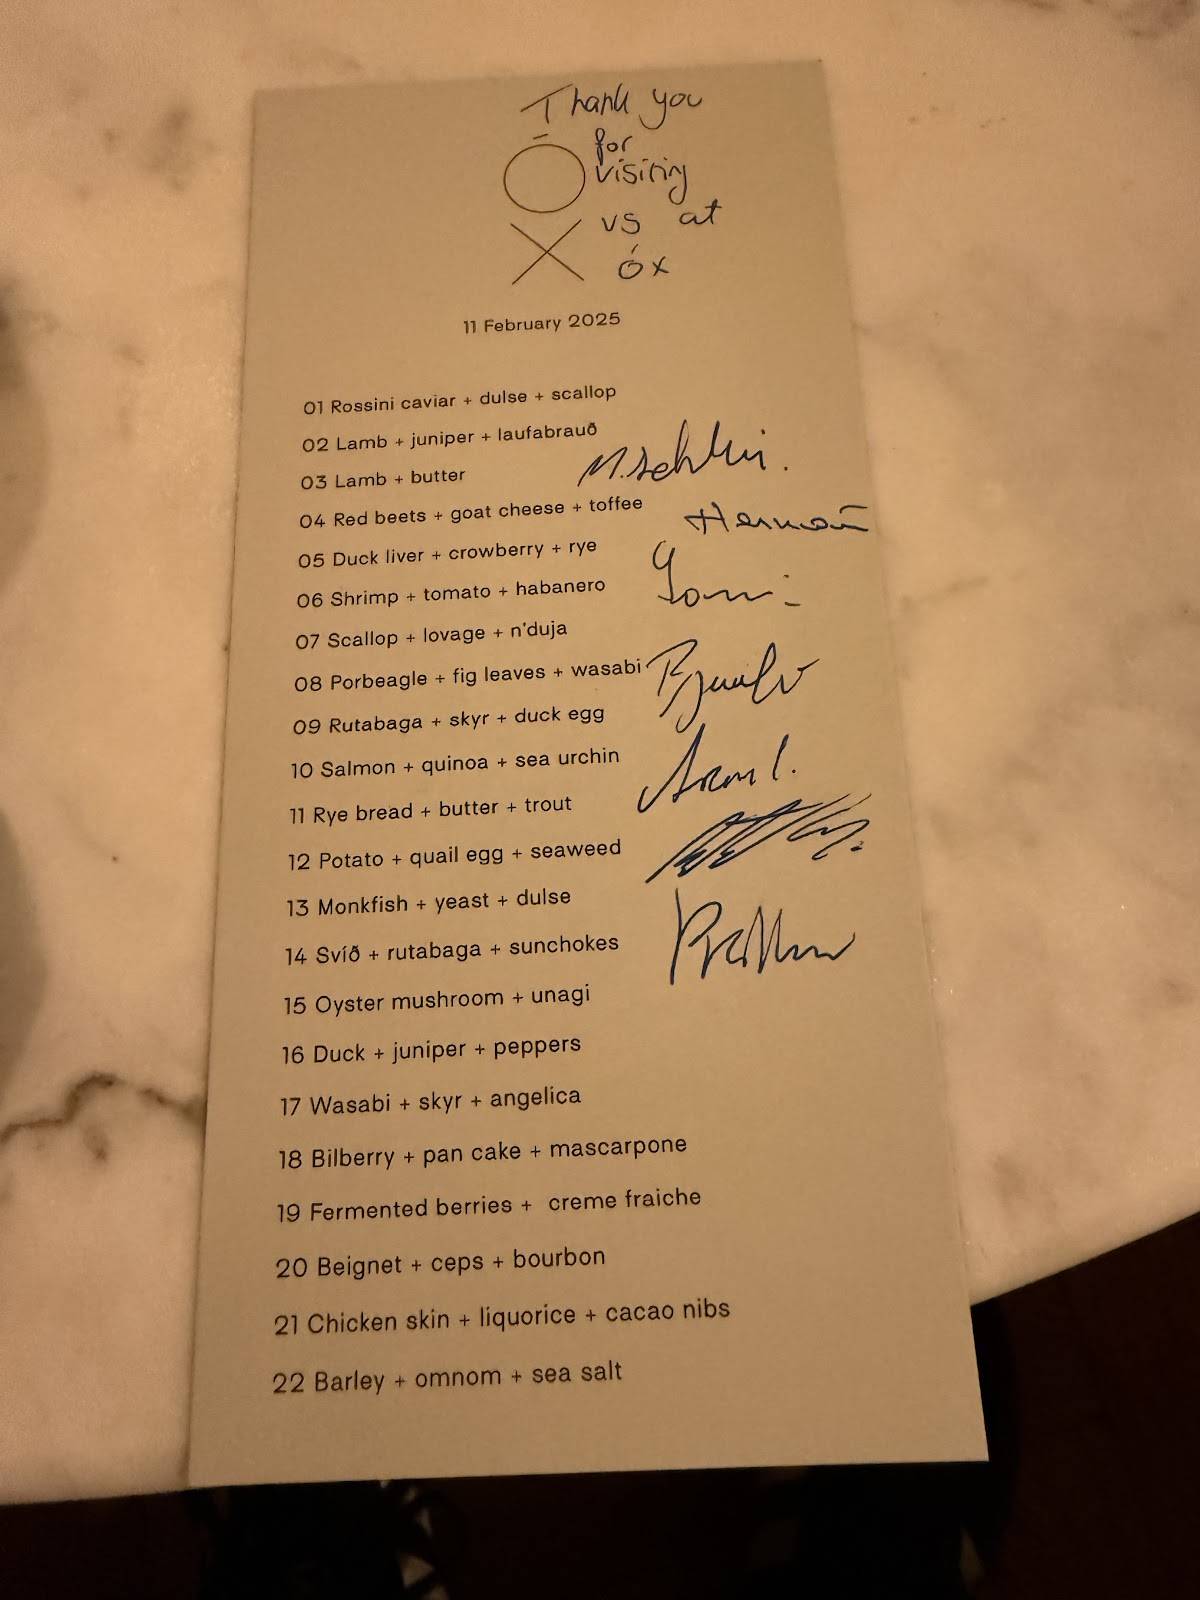 Thank you
for
visiting
us at
óx
Ó
X
11 February 2025
01 Rossini caviar + dulse + scallop
02 Lamb + juniper + laufabrauð
03 Lamb + butter
04 Red beets + goat cheese + toffee
05 Duck liver + crowberry + rye
06 Shrimp + tomato + habanero
07 Scallop + lovage + n'duja
08 Porbeagle + fig leaves + wasabi
09 Rutabaga + skyr + duck egg
10 Salmon + quinoa + sea urchin
11 Rye bread + butter + trout
12 Potato + quail egg + seaweed
13 Monkfish + yeast + dulse
14 Svíð + rutabaga + sunchokes
15 Oyster mushroom + unagi
16 Duck + juniper + peppers
17 Wasabi + skyr + angelica
18 Bilberry + pan cake + mascarpone
19 Fermented berries + creme fraiche
20 Beignet + ceps + bourbon
21 Chicken skin + liquorice + cacao nibs
22 Barley + omnom + sea salt